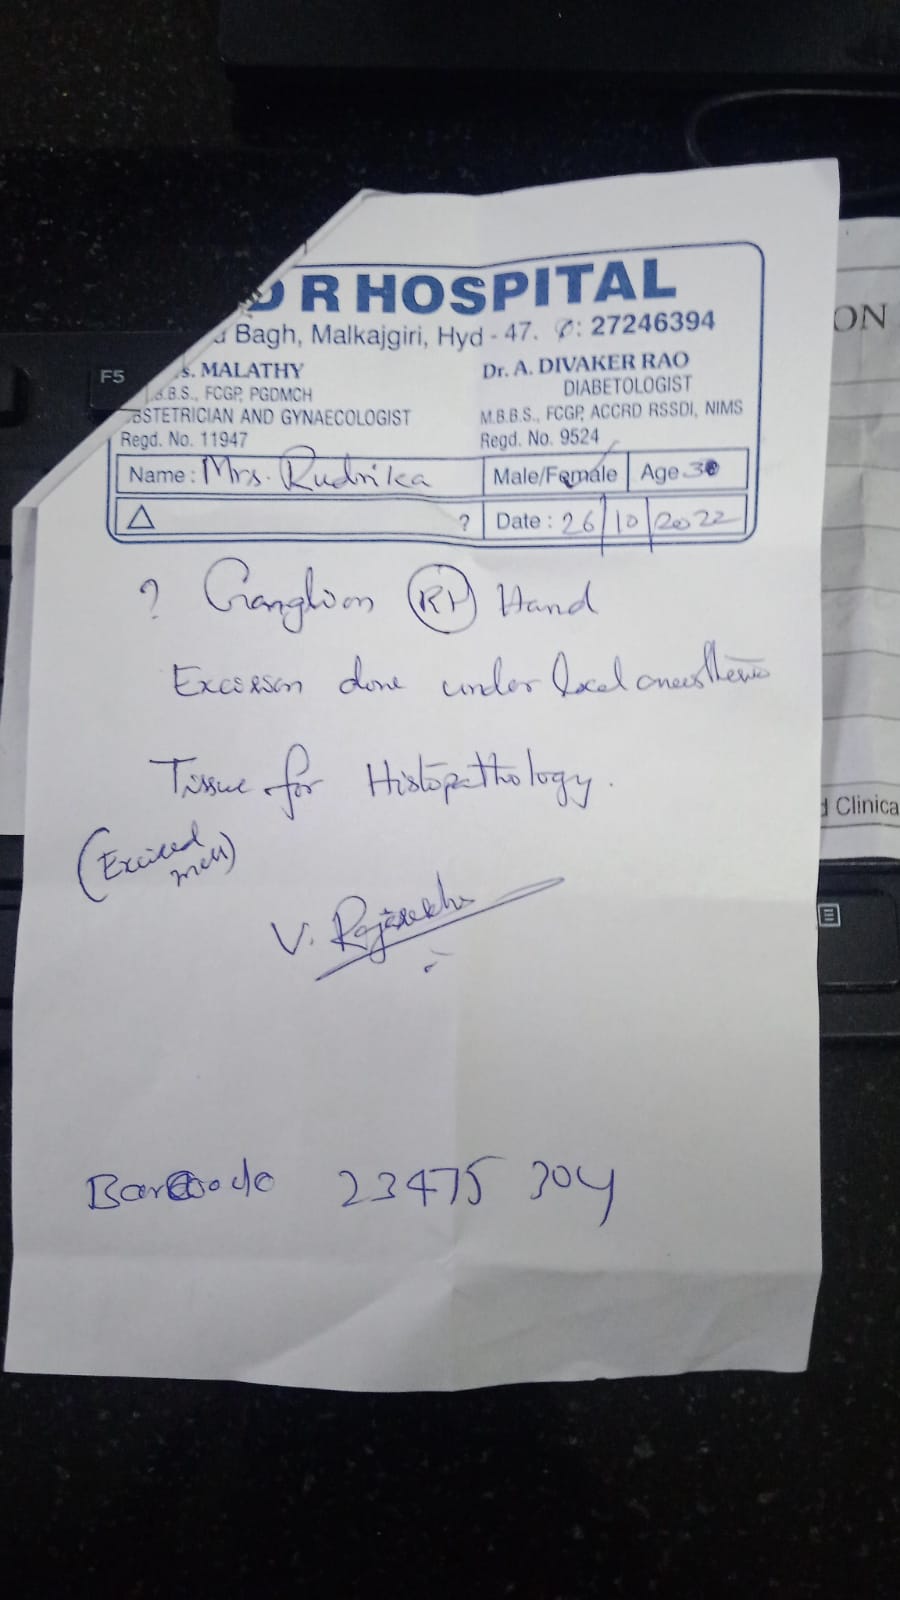 D R HOSPITAL
Bagh, Malkajgiri, Hyd - 47. ✆: 27246394
s. MALATHY
.B.B.S., FCGP, PGDMCH
BSTETRICIAN AND GYNAECOLOGIST
Regd. No. 11947
Dr. A. DIVAKER RAO
DIABETOLOGIST
M.B.B.S., FCGP, ACCRD RSSDI, NIMS
Regd. No. 9524
Name : Mrs. Rudrika Male/Female Age 30
△ ? Date : 26/10/2022
? Ganglion RT Hand
Excission done under local anaesthesia
Tissue for Histopathology.
(Excised
)
V. Rajasekhar
Barcode 23475 304
F5
ON
d Clinica